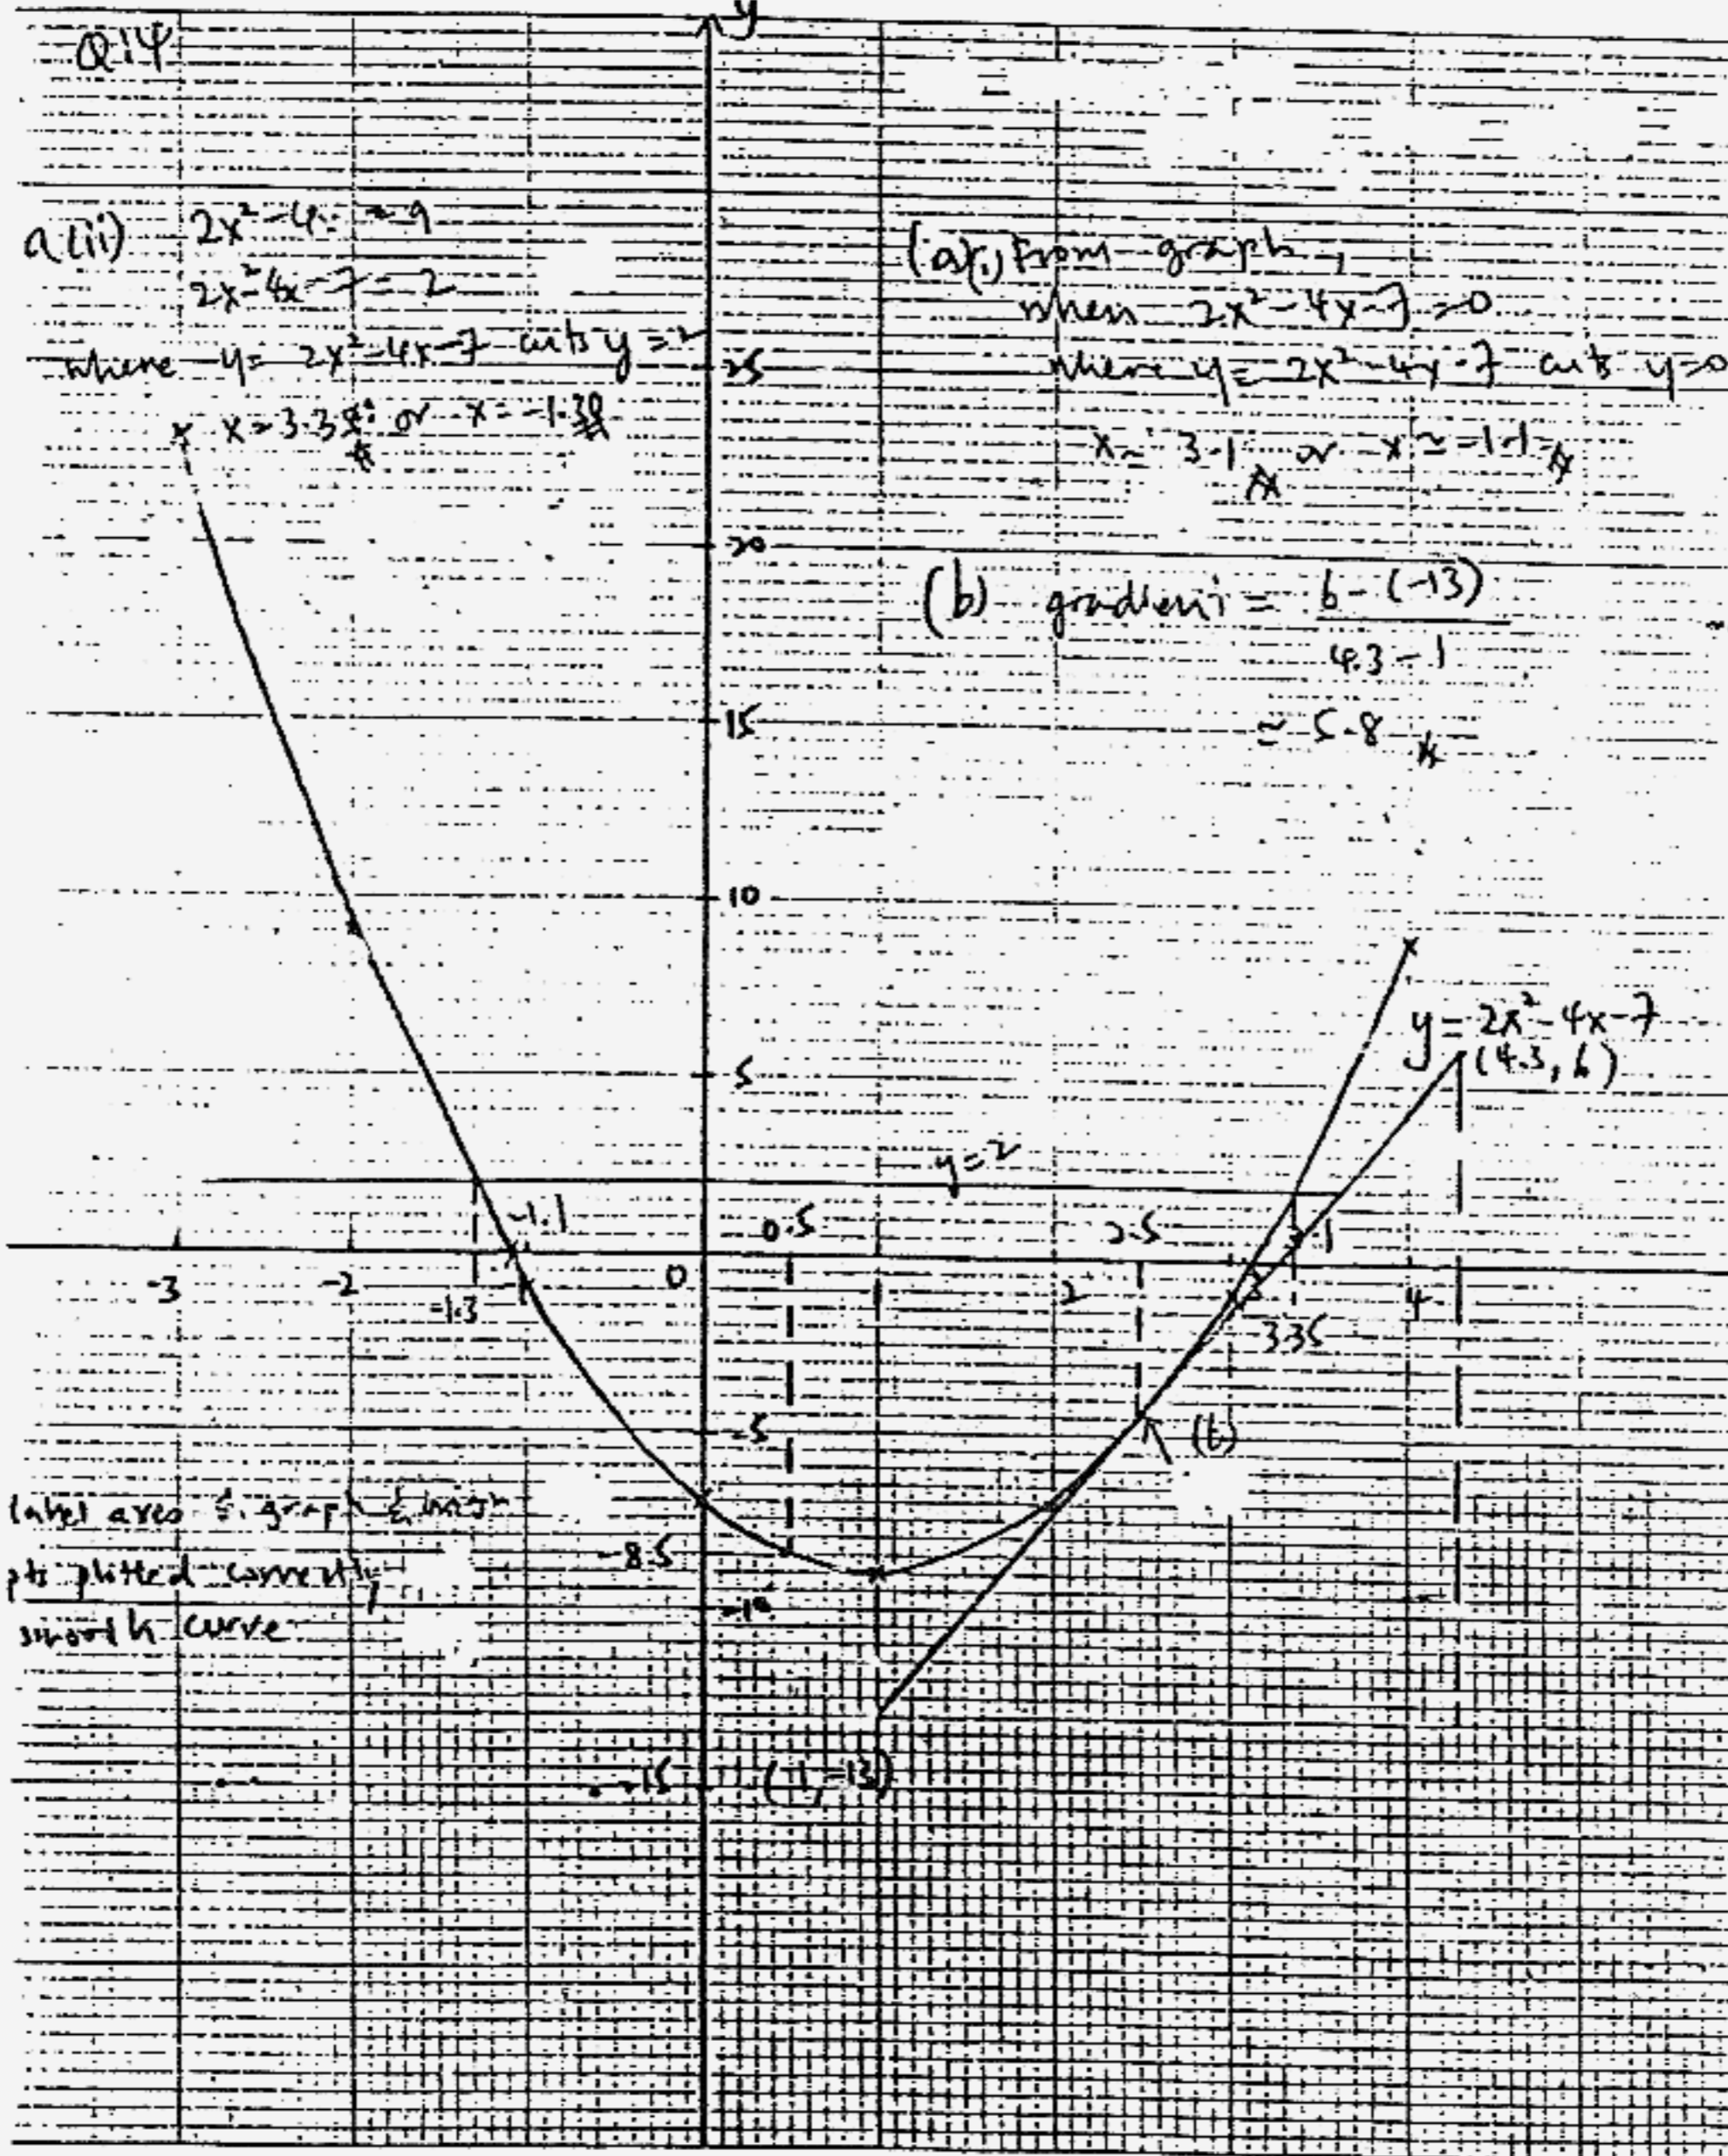 Q14
y
a(ii) 2x²-4 = 9
2x²-4x-7=2
where y= 2x²-4x-7 cuts y=2
x=3.3 or x=-1.3
(a)(i) From graph,
when 2x²-4x-7=0
where y=2x²-4x-7 cuts y=0
x≈3.1 or x≈-1.1
(b) gradient = 6-(-13)
4.3-1
≈ 5.8
25
20
15
10
5
y=2x²-4x-7
(4.3, 6)
y=2
-1.1
0.5
2.5
3.1
-3
-2
-1.3
0
2
3
3.35
4
-5
(b)
label axes & graph &
-8.5
pts plotted correctly
-10
smooth curve
-15
(1,-13)